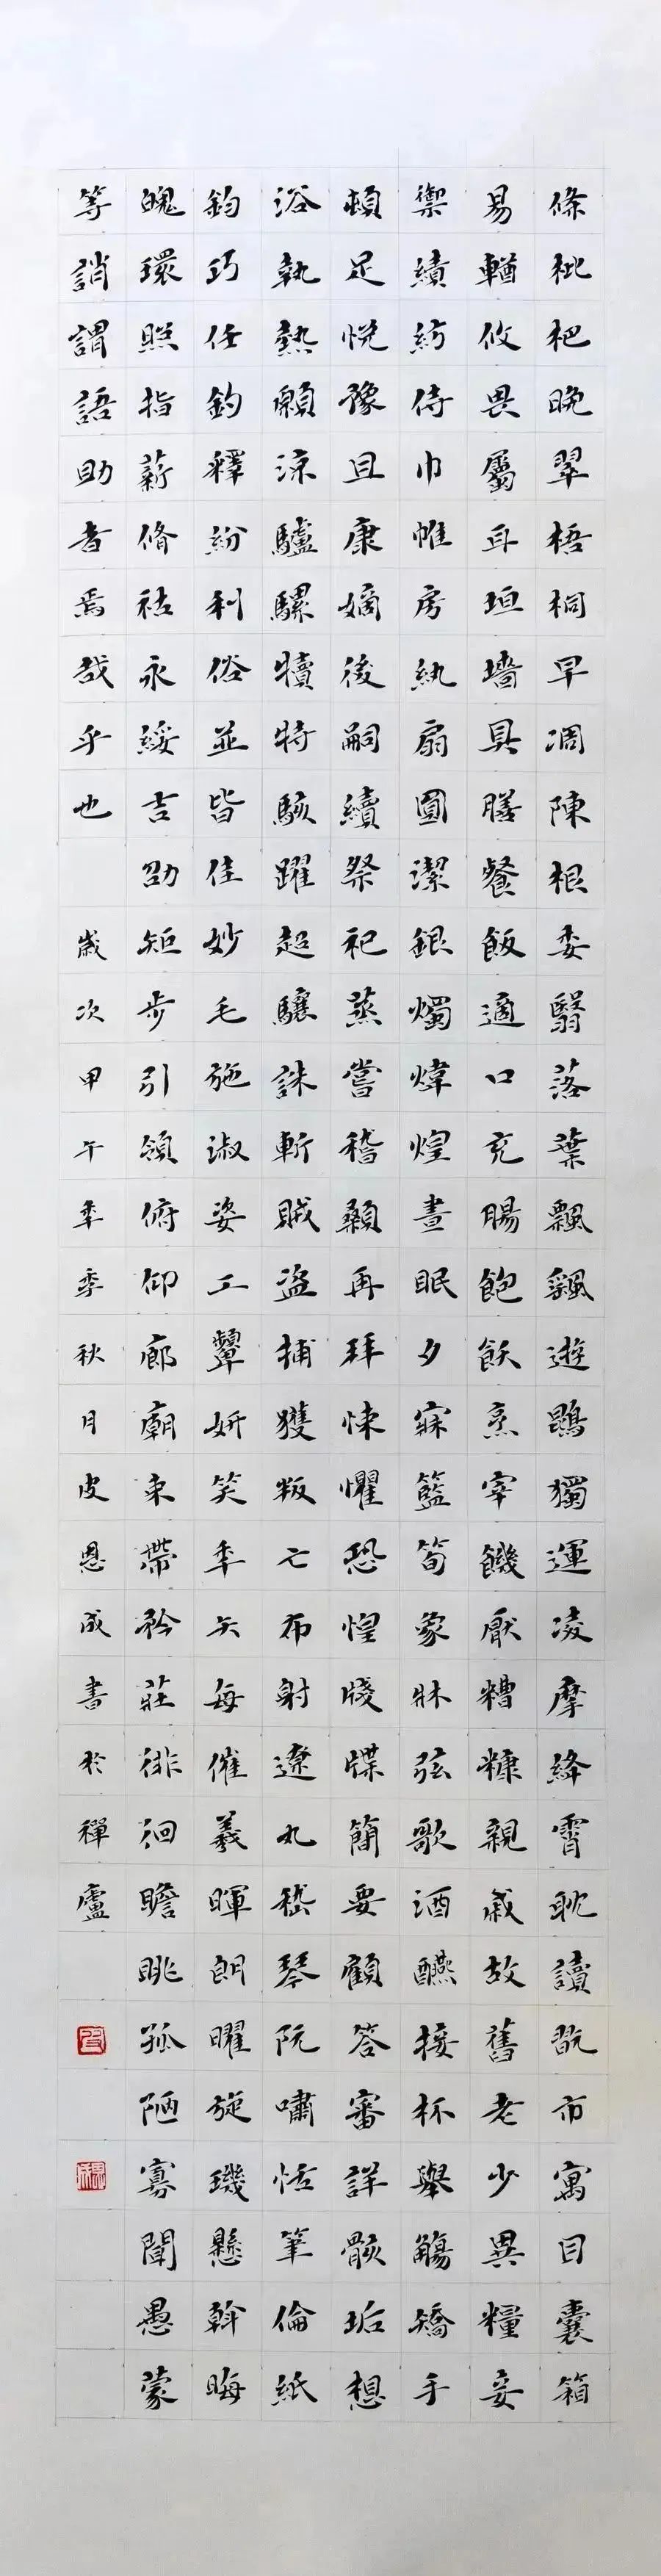 條枇杷晚翠梧桐早凋陳根委翳落葉飄飖遊鵾獨運凌摩絳霄耽讀翫市寓目囊箱
易輶攸畏屬耳垣墻具膳餐飯適口充腸飽飫烹宰饑厭糟糠親戚故舊老少異糧妾
禦績紡侍巾帷房紈扇圓潔銀燭煒煌晝眠夕寐籃筍象牀弦歌酒醼接杯舉觴矯手
頓足悅豫且康嫡後嗣續祭祀蒸嘗稽顙再拜悚懼恐惶牋牒簡要顧答審詳骸垢想
浴執熱願涼驢騾犢特駭躍超驤誅斬賊盜捕獲叛亡布射遼丸嵇琴阮嘯恬筆倫紙
鈞巧任釣釋紛利俗並皆佳妙毛施淑姿工顰妍笑年矢每催羲暉朗曜旋璣懸斡晦
魄環照指薪脩祜永綏吉劭矩步引領俯仰廊廟束帶矜莊徘徊瞻眺孤陋寡聞愚蒙
等誚謂語助者焉哉乎也 歲次甲午年季秋月皮恩成書於禪廬